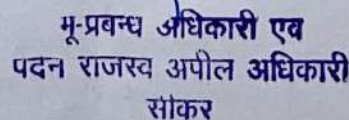 भू-प्रबन्ध अधिकारी एव
पदन राजस्व अपील अधिकारी
सीकर